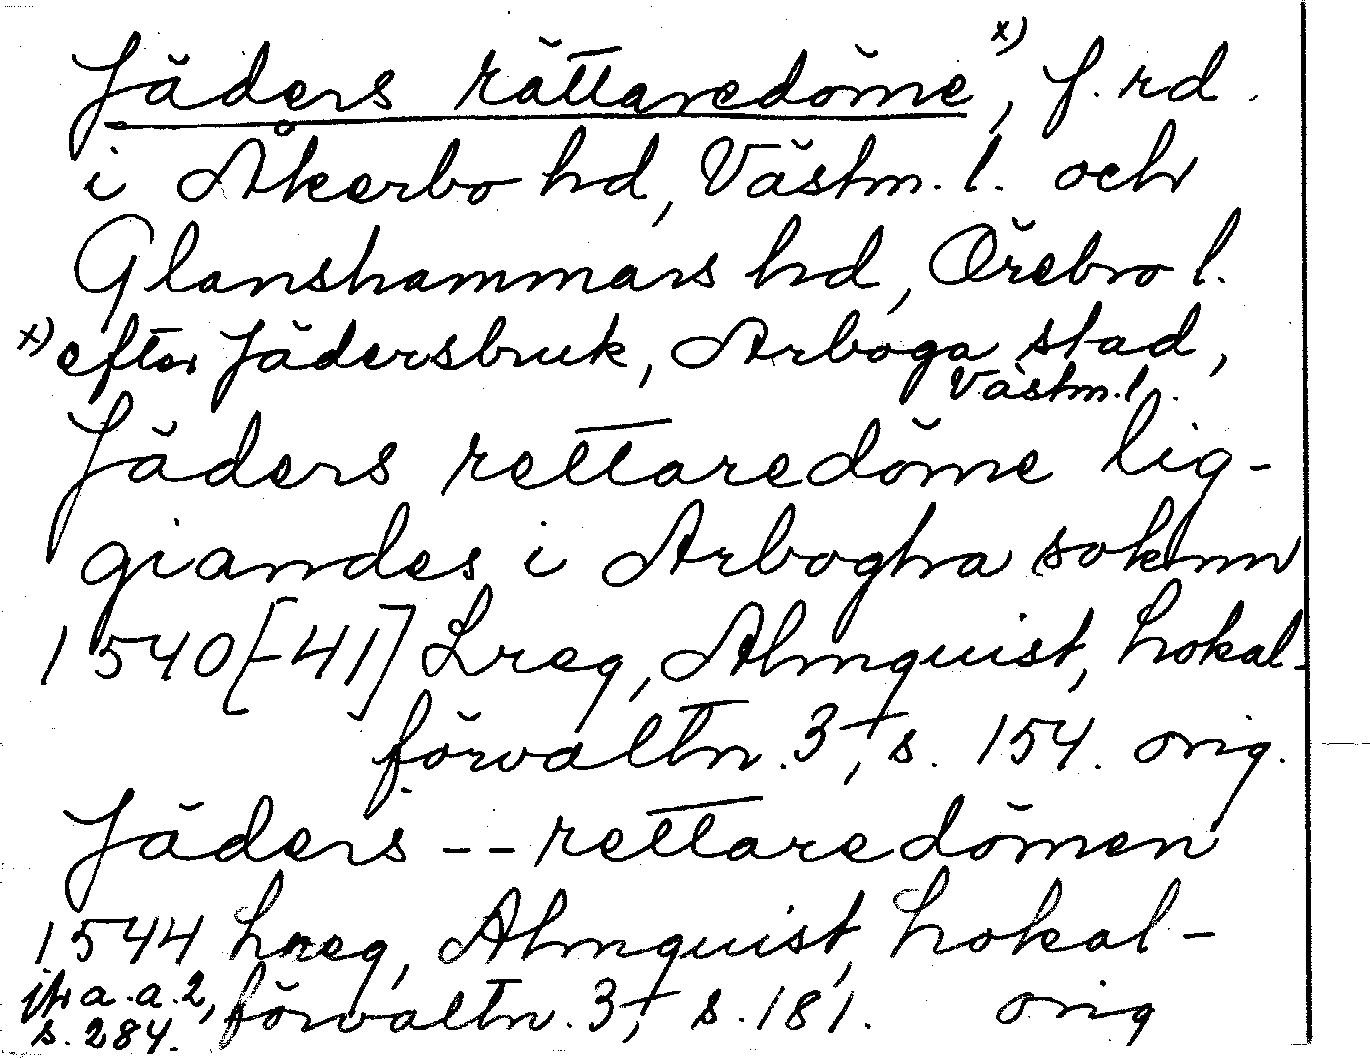 Jäders rättaredöme x), f. rd.
i Åkerbo hd, Västm. l. och
Glanshammars hd, Örebro l.
x) efter Jädersbruk, Arboga stad,
Västm. l.
Jäders rettaredöme lig-
giandes i Arbogha soknn
1540[-41] Lreg, Almquist, Lokal-
förvaltn. 3, s. 154. orig.
Jäders -- rettaredömen
1544 Lreg, Almquist, Lokal-
förvaltn. 3, s. 181. orig
jfr a. a. 2,
s. 284.